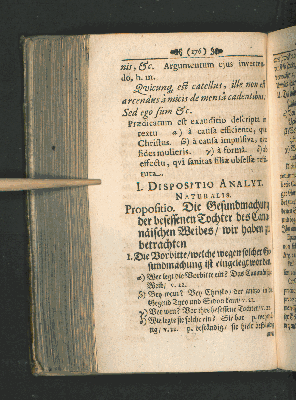 (176)
nis, &c. Argumentum ejus inverten-
do, h. m.
Qvicunq; est catellus, ille non est
arcendus à micis de mensâ cadentibus.
Sed ego sum &c.
Prædicatum est exauditio descripta è
textu α) à causa efficiente, qu
Christus. β) à causa impulsiva, qu
fides mulieris. γ) à formâ. δ) ab
effectu, qvi sanitas filiæ obsessæ
I. DISPOSITIO ANALYT.
NATURALIS.
Propositio. Die Gesundmachung
der besessenen Tochter des Cana-
näischen Weibes / wir haben zu
betrachten
1. Die Vorbitte / welche wegen solcher Ge-
sundmachung ist eingelegt worden
α) Wer legt die Vorbitte ein? Das Cananäische
Weib / v. 22.
β) Bey wem? Bey Christo / der
Gegend Tyro und Sidon kam v. 21.
γ) Vor wem? Vor ihre besessene Tochter v. 22.
δ) Wie legte sie solche ein? Sie bat
v. 22. beständig /